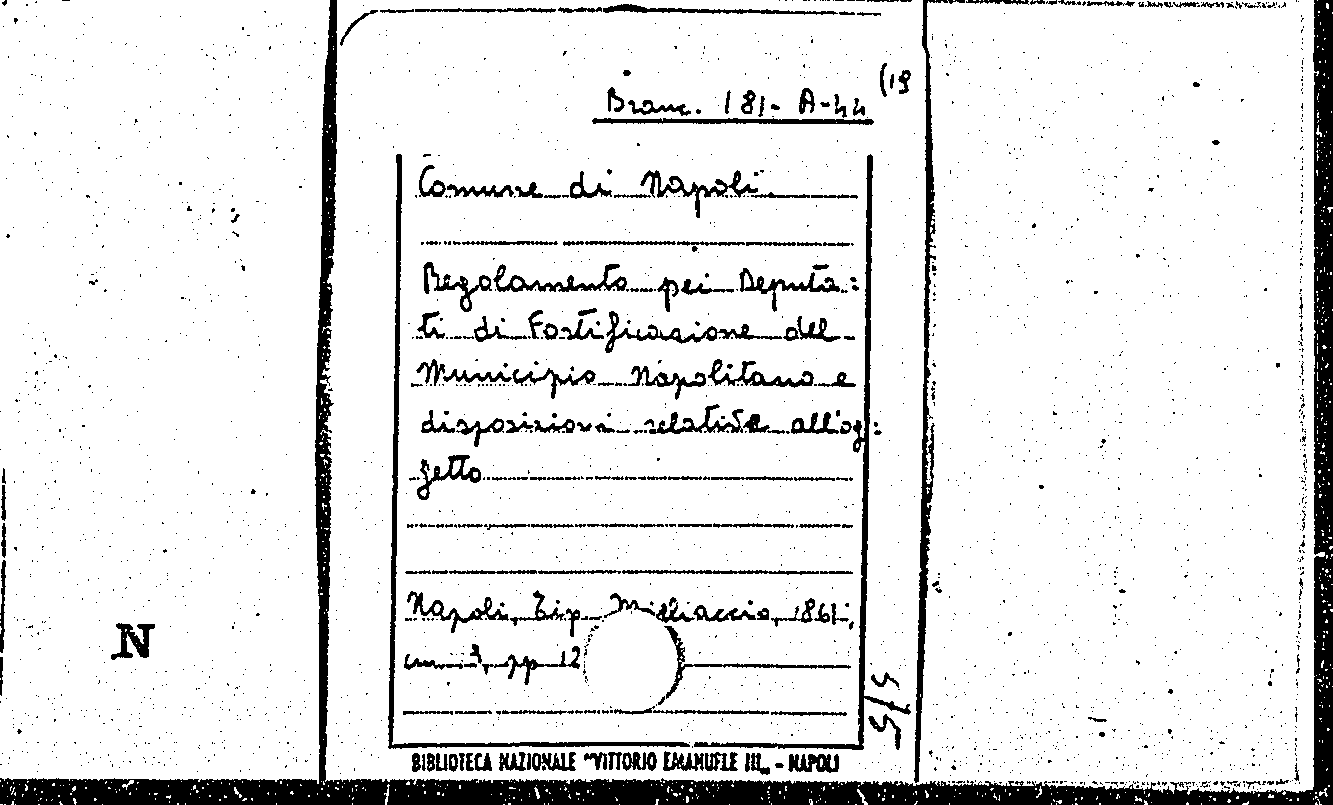 Branc. 181- A-44 (19
Comune di Napoli.
Regolamento pei Deputa:
ti di Fortificazione del
Municipio Napolitano e
disposizioni relative all'og:
getto
Napoli, Tip. Migliaccio, 1861;
cm. , pp 12
N
5/5
BIBLIOTECA NAZIONALE "VITTORIO EMANUELE III„ - NAPOLI